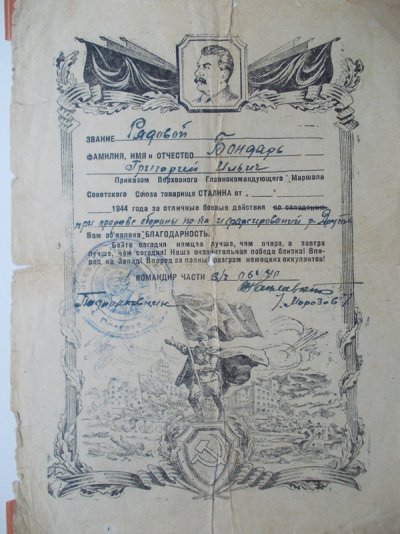 ЗВАНИЕ Рядовой
ФАМИЛИЯ, ИМЯ и ОТЧЕСТВО Бондарь
Григорий Ильич
Приказом Верховного Главнокомандующего Маршала
Советского Союза товарища СТАЛИНА от
1944 года за отличные боевые действия
при прорыве обороны пр-ка и форсировании р.
Вам об'явлена БЛАГОДАРНОСТЬ.
Бейте сегодня немцев лучше, чем вчера, а завтра
лучше, чем сегодня! Наша окончательная победа близка! Впе-
ред, на Запад! Вперед, за полный разгром немецких оккупантов!
КОМАНДИР ЧАСТИ В/Ч
Подполковник
/Морозов/